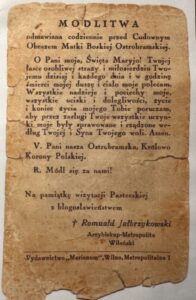 MODLITWA
odmawiana codziennie przed Cudownym
Obrazem Matki Boskiej Ostrobramskiej.
O Pani moja, Święta Maryjo! Twojej
łasce osobliwej straży i miłosierdziu Twe-
jemu dzisiaj i każdego dnia i w godzinę
śmierci mojej duszę i ciało moje polecam.
Wszystkie nadzieje i pociechy moje,
wszystkie uciski i dolegliwości, życie
i koniec życia mojego Tobie poruczam,
aby przez zasługi Twoje wszystkie uczyn-
ki moje były sprawowane i rządzone we-
dług Twojej i Syna Twojego woli. Amen.
V. Pani nasza Ostrobramska, Królowo
Korony Polskiej.
R. Módl się za nami!
Na pamiątkę wizytacji Pasterskiej
z błogosławieństwem
† Romuald Jałbrzykowski
Arcybiskup-Metropolita
Wileński
Wydawnictwo „Marianum", Wilno, Metropolitalna 1